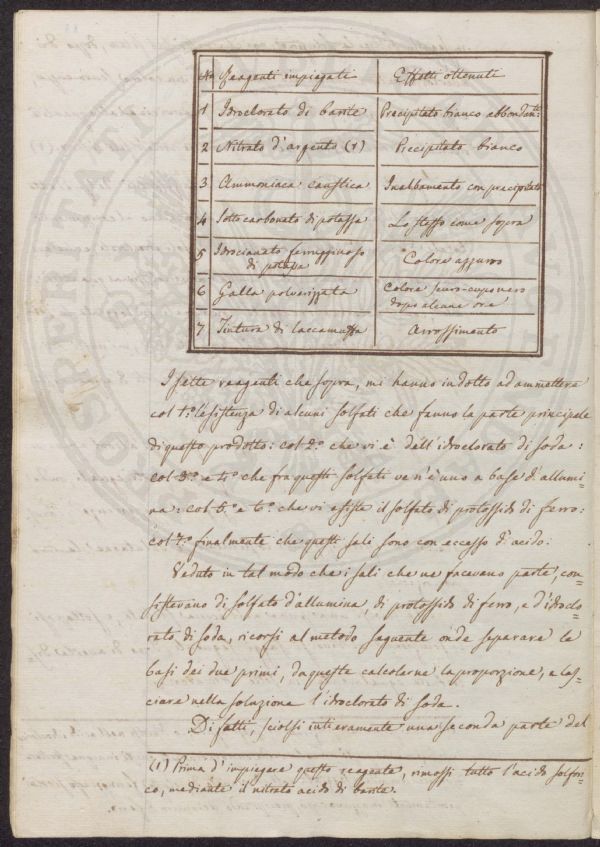 No Reagenti impiegati Effetti ottenuti
1 Idroclorato di barite Precipitato bianco abbondante:
2 Nitrato d'argento (1) Precipitato bianco
3 Ammoniaca caustica Inalbamento con precipitato
4 Sotto carbonato di potassa Lo stesso come sopra
5 Idrocianato ferrugginoso di potassa Colore azzurro
6 Galla polverizzata Colore scuro-cupo nero dopo alcune ore
7 Tintura di laccamuffa Arrossimento
I sette reagenti che sopra, mi hanno indotto ad ammettere
col 1.o l'esistenza di alcuni solfati che fanno la parte principale
di questo prodotto: col 2.o che vi è dell'idroclorato di soda:
col 3.o e 4.o che fra questi solfati ve n'è uno a base d'allumi=
na: col 5.o e 6.o che vi esiste il solfato di protossido di ferro:
col 7.o finalmente che questi sali sono con eccesso d'acido:
Veduto in tal modo che i sali che ne facevano parte, con=
sistevano di solfato d'allumina di protossido di ferro, e d'idroclo=
rato di soda, ricorsi al metodo seguente onde separare le
basi dei due primi, da queste calcolarne la proporzione, e las=
ciare nella soluzione l'idroclorato di soda.
Di fatti, sciolsi intieramente una seconda parte del
(1) Prima d'impiegare questo reagente, rimossi tutto l'acido solfori=
co, mediante il nitrato acido di barite.